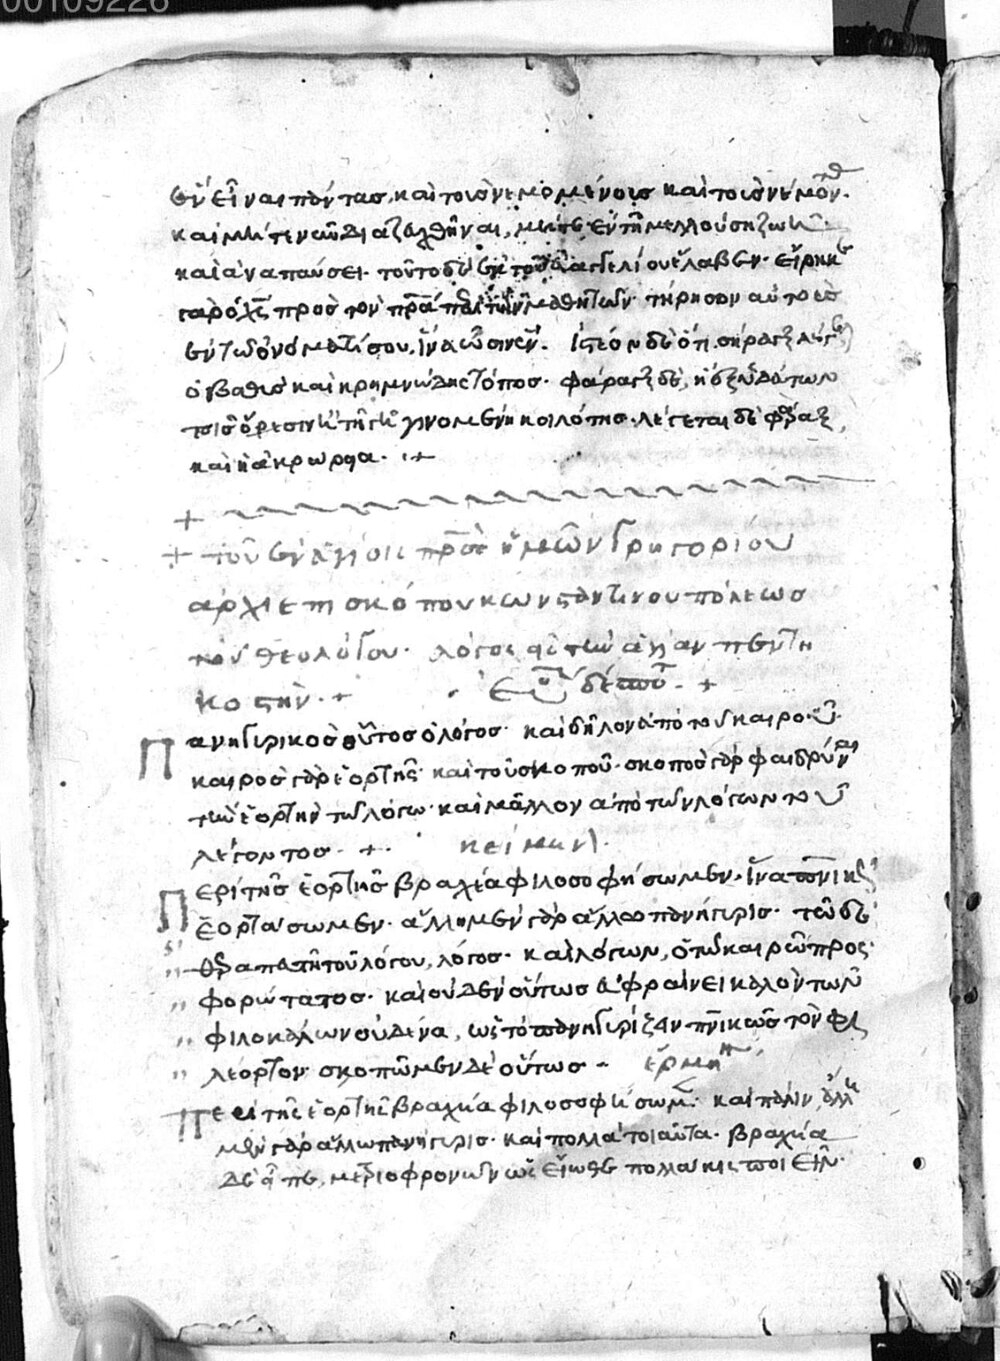 00109226
ἓν εἶναι πάντας, καὶ τοὺς νεμομένους καὶ τοὺς νέμοντ.
καὶ μή τινων διαζευχθῆναι, μήτε ἐν τῇ μελλούσῃ ζωῇ
καὶ ἀναπαύσει. τοῦτο δὲ ἐκ τοῦ εὐαγγελίου ἔλαβεν. εἴρηκε
γὰρ ὁ χς πρὸς τὸν πρα τῶν μαθητῶν· τήρησον αὐτοὺς
ἐν τῷ ὀνόματί σου, ἵνα ὦσιν ἕν. ἰστέον δὲ ὅτι
ὁ βαθὺς καὶ κρημνώδης τόπος. φάραγξ δὲ, ἡ ἐξ ὑδάτων
τοῖς ὄρεσιν τῇ γῇ γινομένη κοιλότης. λέγεται δὲ
καὶ ἡ ἀκρώρεια. +
+
+ τοῦ ἐν ἁγίοις πρς ἡμῶν Γρηγορίου
ἀρχιεπισκόπου κωνσταντινουπόλεως
τοῦ θεολόγου. λόγος εἰς τὴν ἁγίαν πεντη
κοστήν. +
Πανηγυρικὸς οὗτος ὁ λόγος. καὶ δῆλον ἀπὸ τοῦ καιροῦ.
καιρὸς γὰρ ἑορτῆς· καὶ τοῦ σκοποῦ. σκοπὸς γὰρ φαιδρῦναι
τὴν ἑορτὴν τῷ λόγῳ. καὶ μᾶλλον ἀπὸ τῶν λόγων τοῦ
λέγοντος. + κείμεν
Περὶ τῆς ἑορτῆς βραχέα φιλοσοφήσωμεν. ἵνα πνικῶς
ἑορτάσωμεν. ἄλλη μὲν γὰρ ἄλλῳ πανήγυρις. τῷ δὲ
θεραπευτῇ τοῦ λόγου, λόγος. καὶ λόγων, ὁ τῷ καιρῷ προσ
φορώτατος. καὶ οὐδὲν οὕτως εὐφραίνει καλὸν τῶν
φιλοκάλων οὐδένα, ὡς τὸ πανηγυρίζειν πνικῶς τὸν φι
λέορτον. σκοπῶμεν δὲ οὕτως - ἑρμη
Περὶ τῆς ἑορτῆς βραχέα φιλοσοφήσωμ. καὶ πάλιν, ἄλλη
μὲν γὰρ ἄλλῳ πανήγυρις. καὶ πολλὰ τοιαῦτα. βραχέα
δὲ εἶπε, μετριοφρονῶν ὡς εἴωθε πολλάκις ποιεῖν.